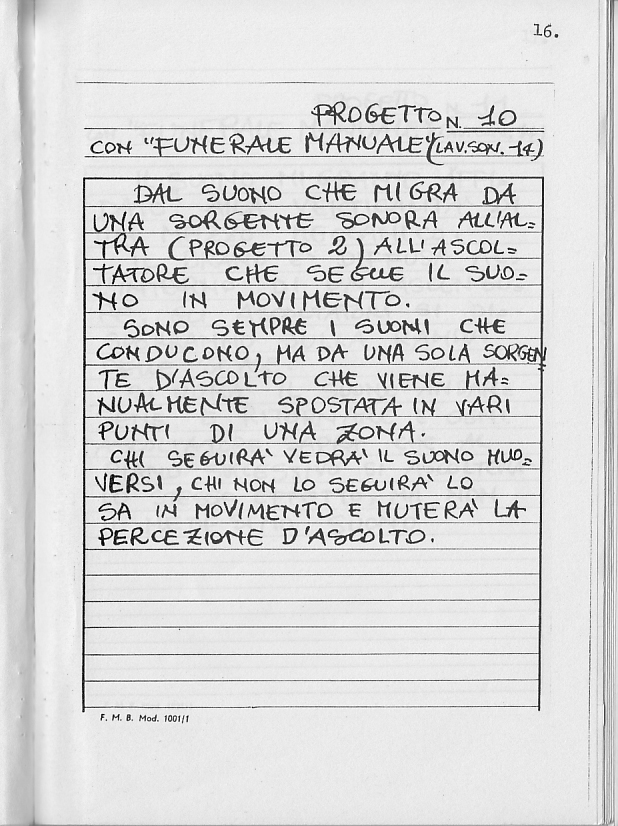 16.
PROGETTO N. 10
CON "FUNERALE MANUALE" (LAV. SON. 14)
DAL SUONO CHE MIGRA DA
UNA SORGENTE SONORA ALL'AL=
TRA (PROGETTO 2) ALL'ASCOL=
TATORE CHE SEGUE IL SUO=
NO IN MOVIMENTO.
SONO SEMPRE I SUONI CHE
CONDUCONO, MA DA UNA SOLA SORGEN
TE D'ASCOLTO CHE VIENE MA=
NUALMENTE SPOSTATA IN VARI
PUNTI DI UNA ZONA.
CHI SEGUIRA' VEDRA' IL SUONO MUO=
VERSI, CHI NON LO SEGUIRA' LO
SA IN MOVIMENTO E MUTERA' LA
PERCEZIONE D'ASCOLTO.
F. M. B. Mod. 1001/1